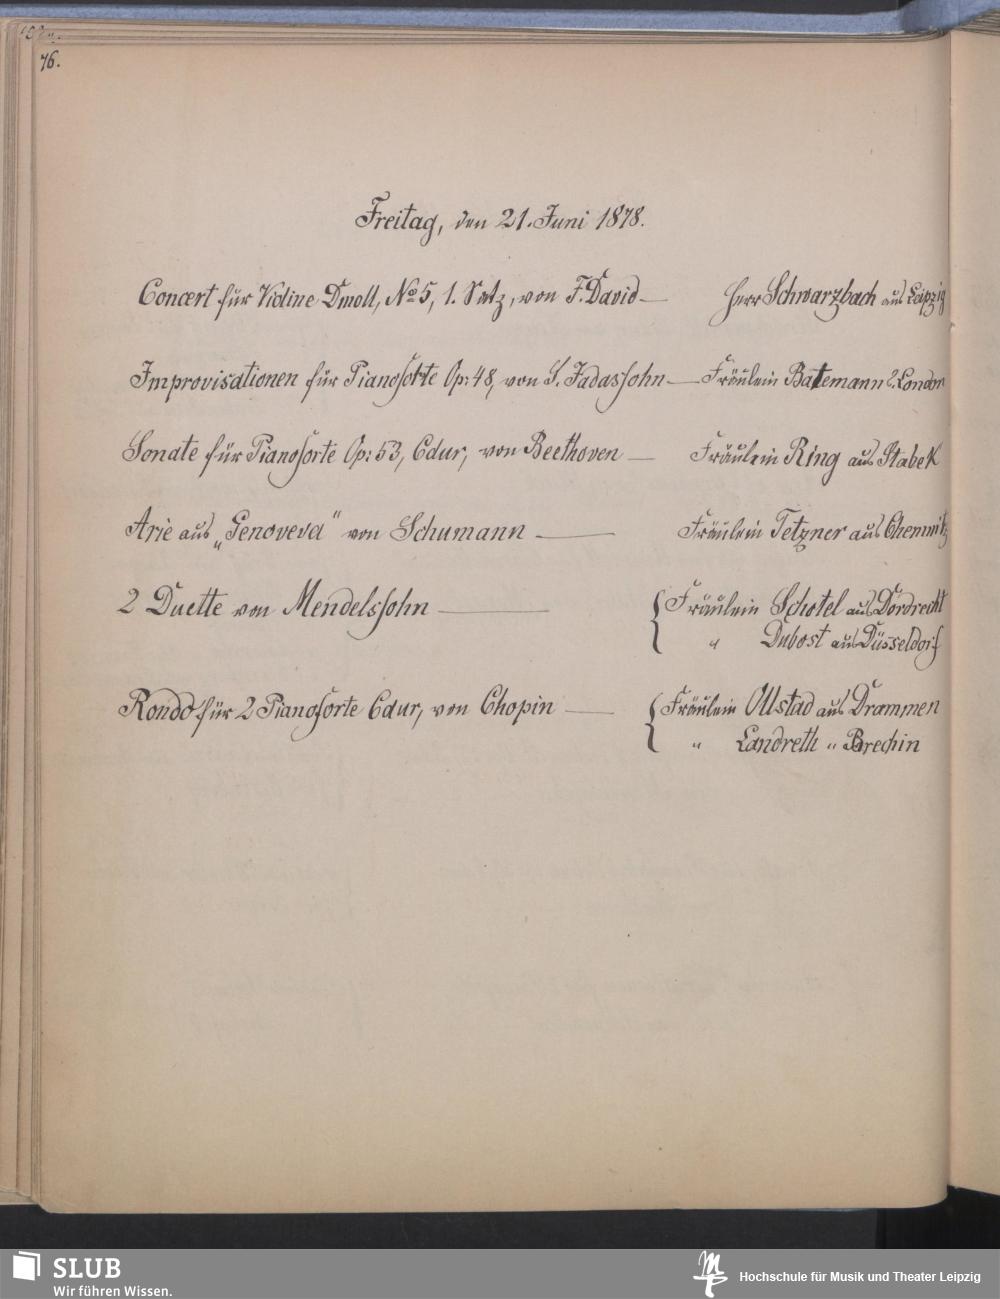 76.
Freitag, den 21. Juni 1878.
Concert für Violine Dmoll, No 5, 1. Satz, von F. David — Herr Schwarzbach aus Leipzig
Improvisationen für Pianoforte Op: 48, von S. Jadassohn — Fräulein Batemann a. London
Sonate für Pianoforte Op: 53, Cdur, von Beethoven — Fräulein Ring aus Stabek
Arie aus „Genoveva" von Schumann — Fräulein Tetzner aus Chemnitz
2 Duette von Mendelssohn — { Fräulein Schotel aus Dordrecht
" Dubost aus Düsseldorf
Rondo für 2 Pianoforte Cdur, von Chopin — { Fräulein Ollstad aus Drammen
" Landreth " Brechin
SLUB
Wir führen Wissen.
Hochschule für Musik und Theater Leipzig